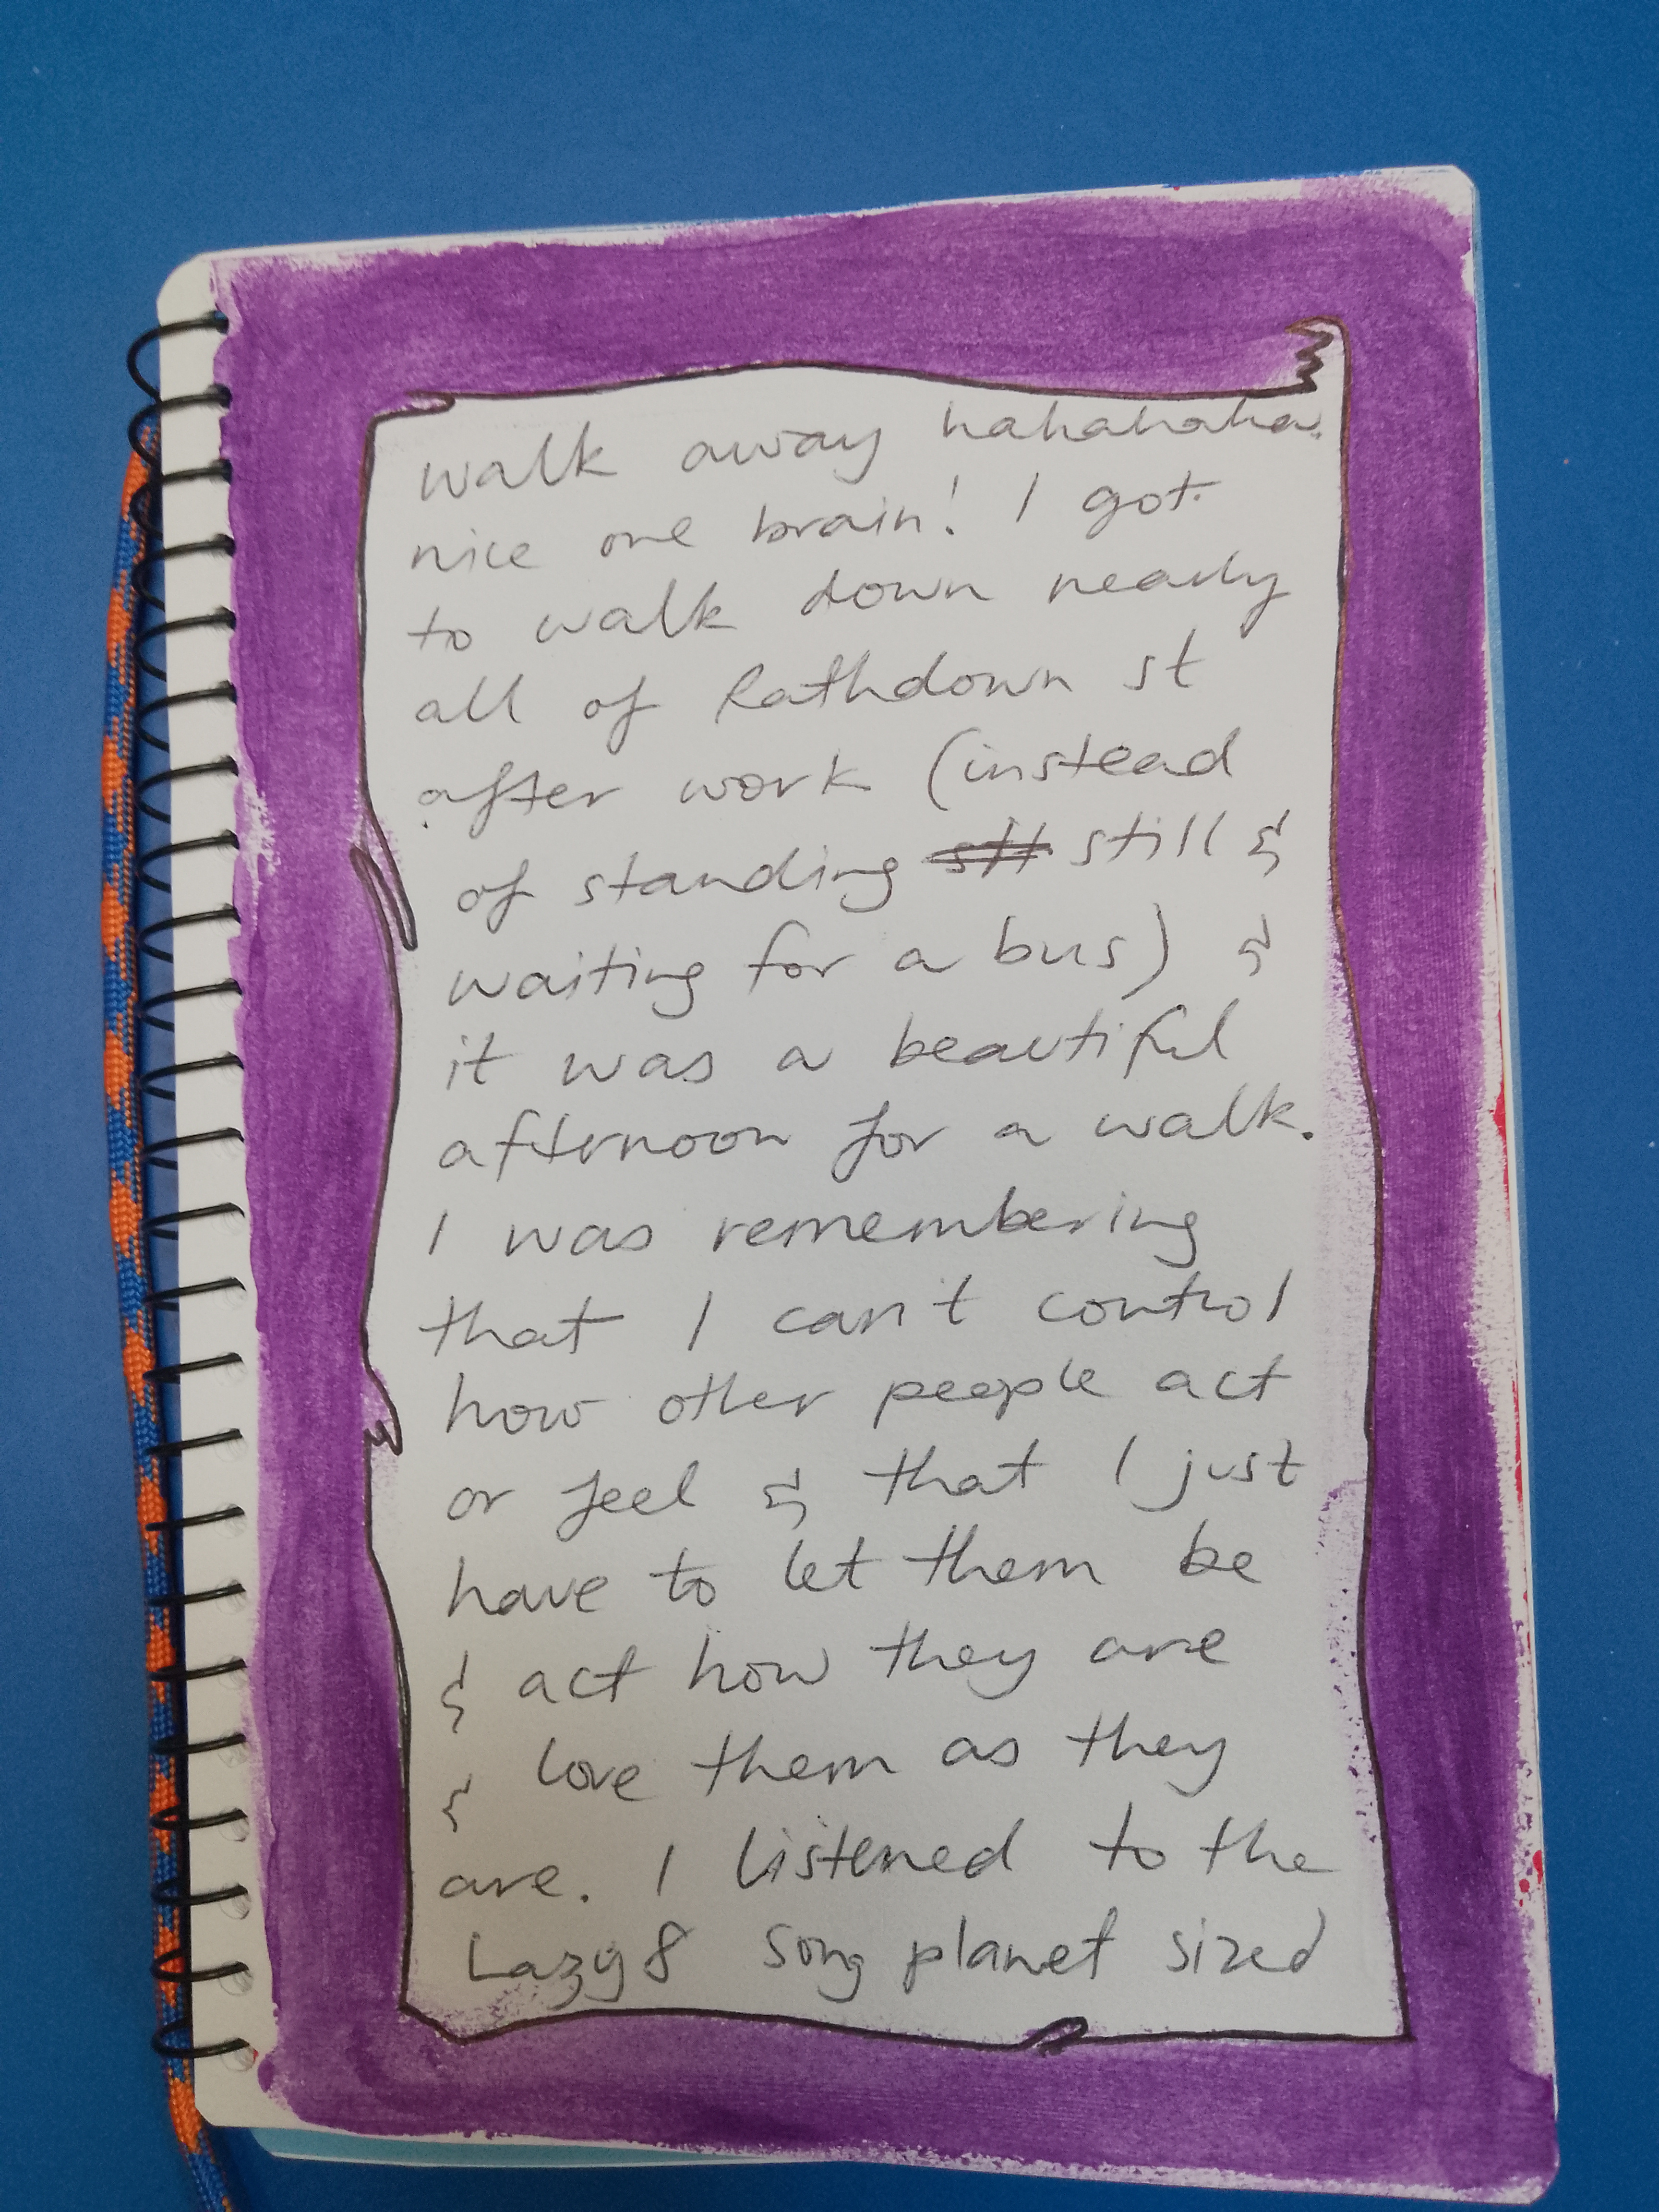 walk away hahahaha.
nice one brain! I got
to walk down nearly
all of Rathdown st
after work (instead
of standing still &
waiting for a bus) &
it was a beautiful
afternoon for a walk.
I was remembering
that I can't control
how other people act
or feel & that I just
have to let them be
& act how they are
& love them as they
are. I listened to the
Lazy 8 song planet sized